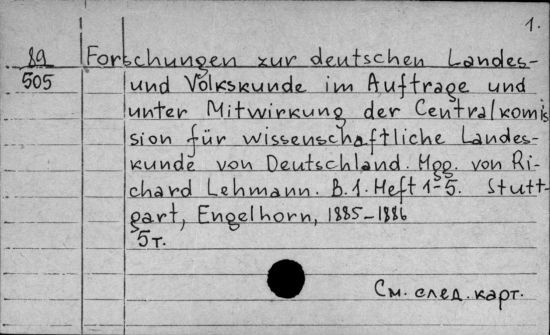 1.
89
505
Forschungen zur deutschen Landes-
und Volkskunde im Auftrage und
unter Mitwirkung der Centralkomis
sion für wissenschaftliche Landes-
kunde von Deutschland. Hgg. von Ri-
chard Lehmann. B.1. Heft 1-5. Stutt-
gart, Engelhorn, 1885-1886
5т.
См. след. карт.